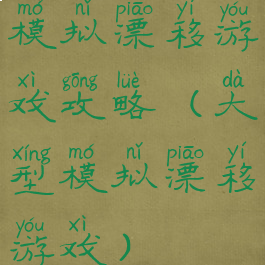 mó nǐ piāo yí yóu
模拟漂移游
xì gōng lüè dà
戏攻略（大
xíng mó nǐ piāo yí
型模拟漂移
yóu xì
游戏）